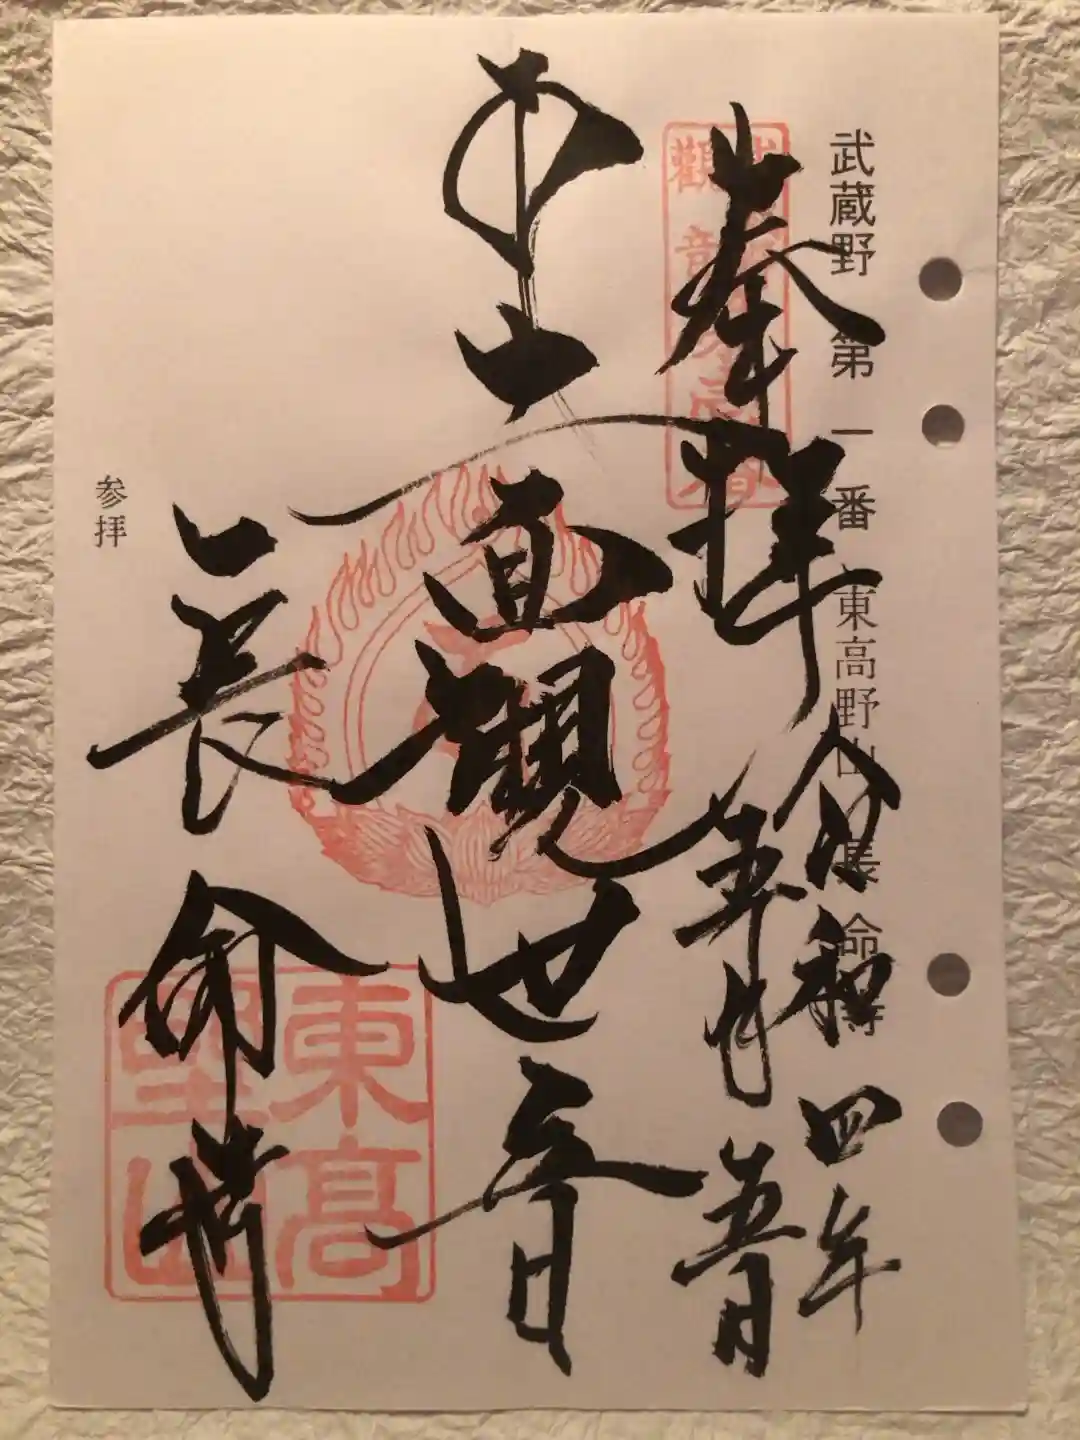 武蔵野 第一番 東高野山 長命寺
奉拝
令和四年
五月五日
十一面観世音
長命寺
参拝
東高野山